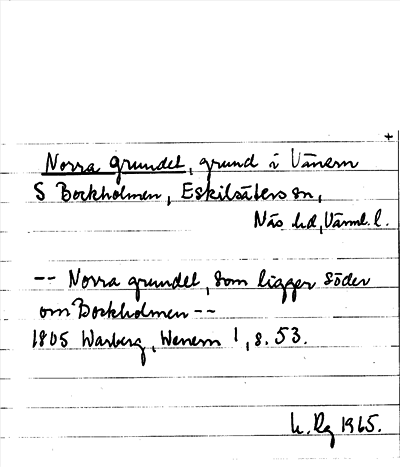 +
Norra grundet, grund i Vänern
S Bockholmen, Eskilsäters sn,
Näs hd, Värml. l.
-- Norra grundet, som ligger söder
om Bockholmen --
1805 Warberg, Wenern 1, s. 53.
1965.